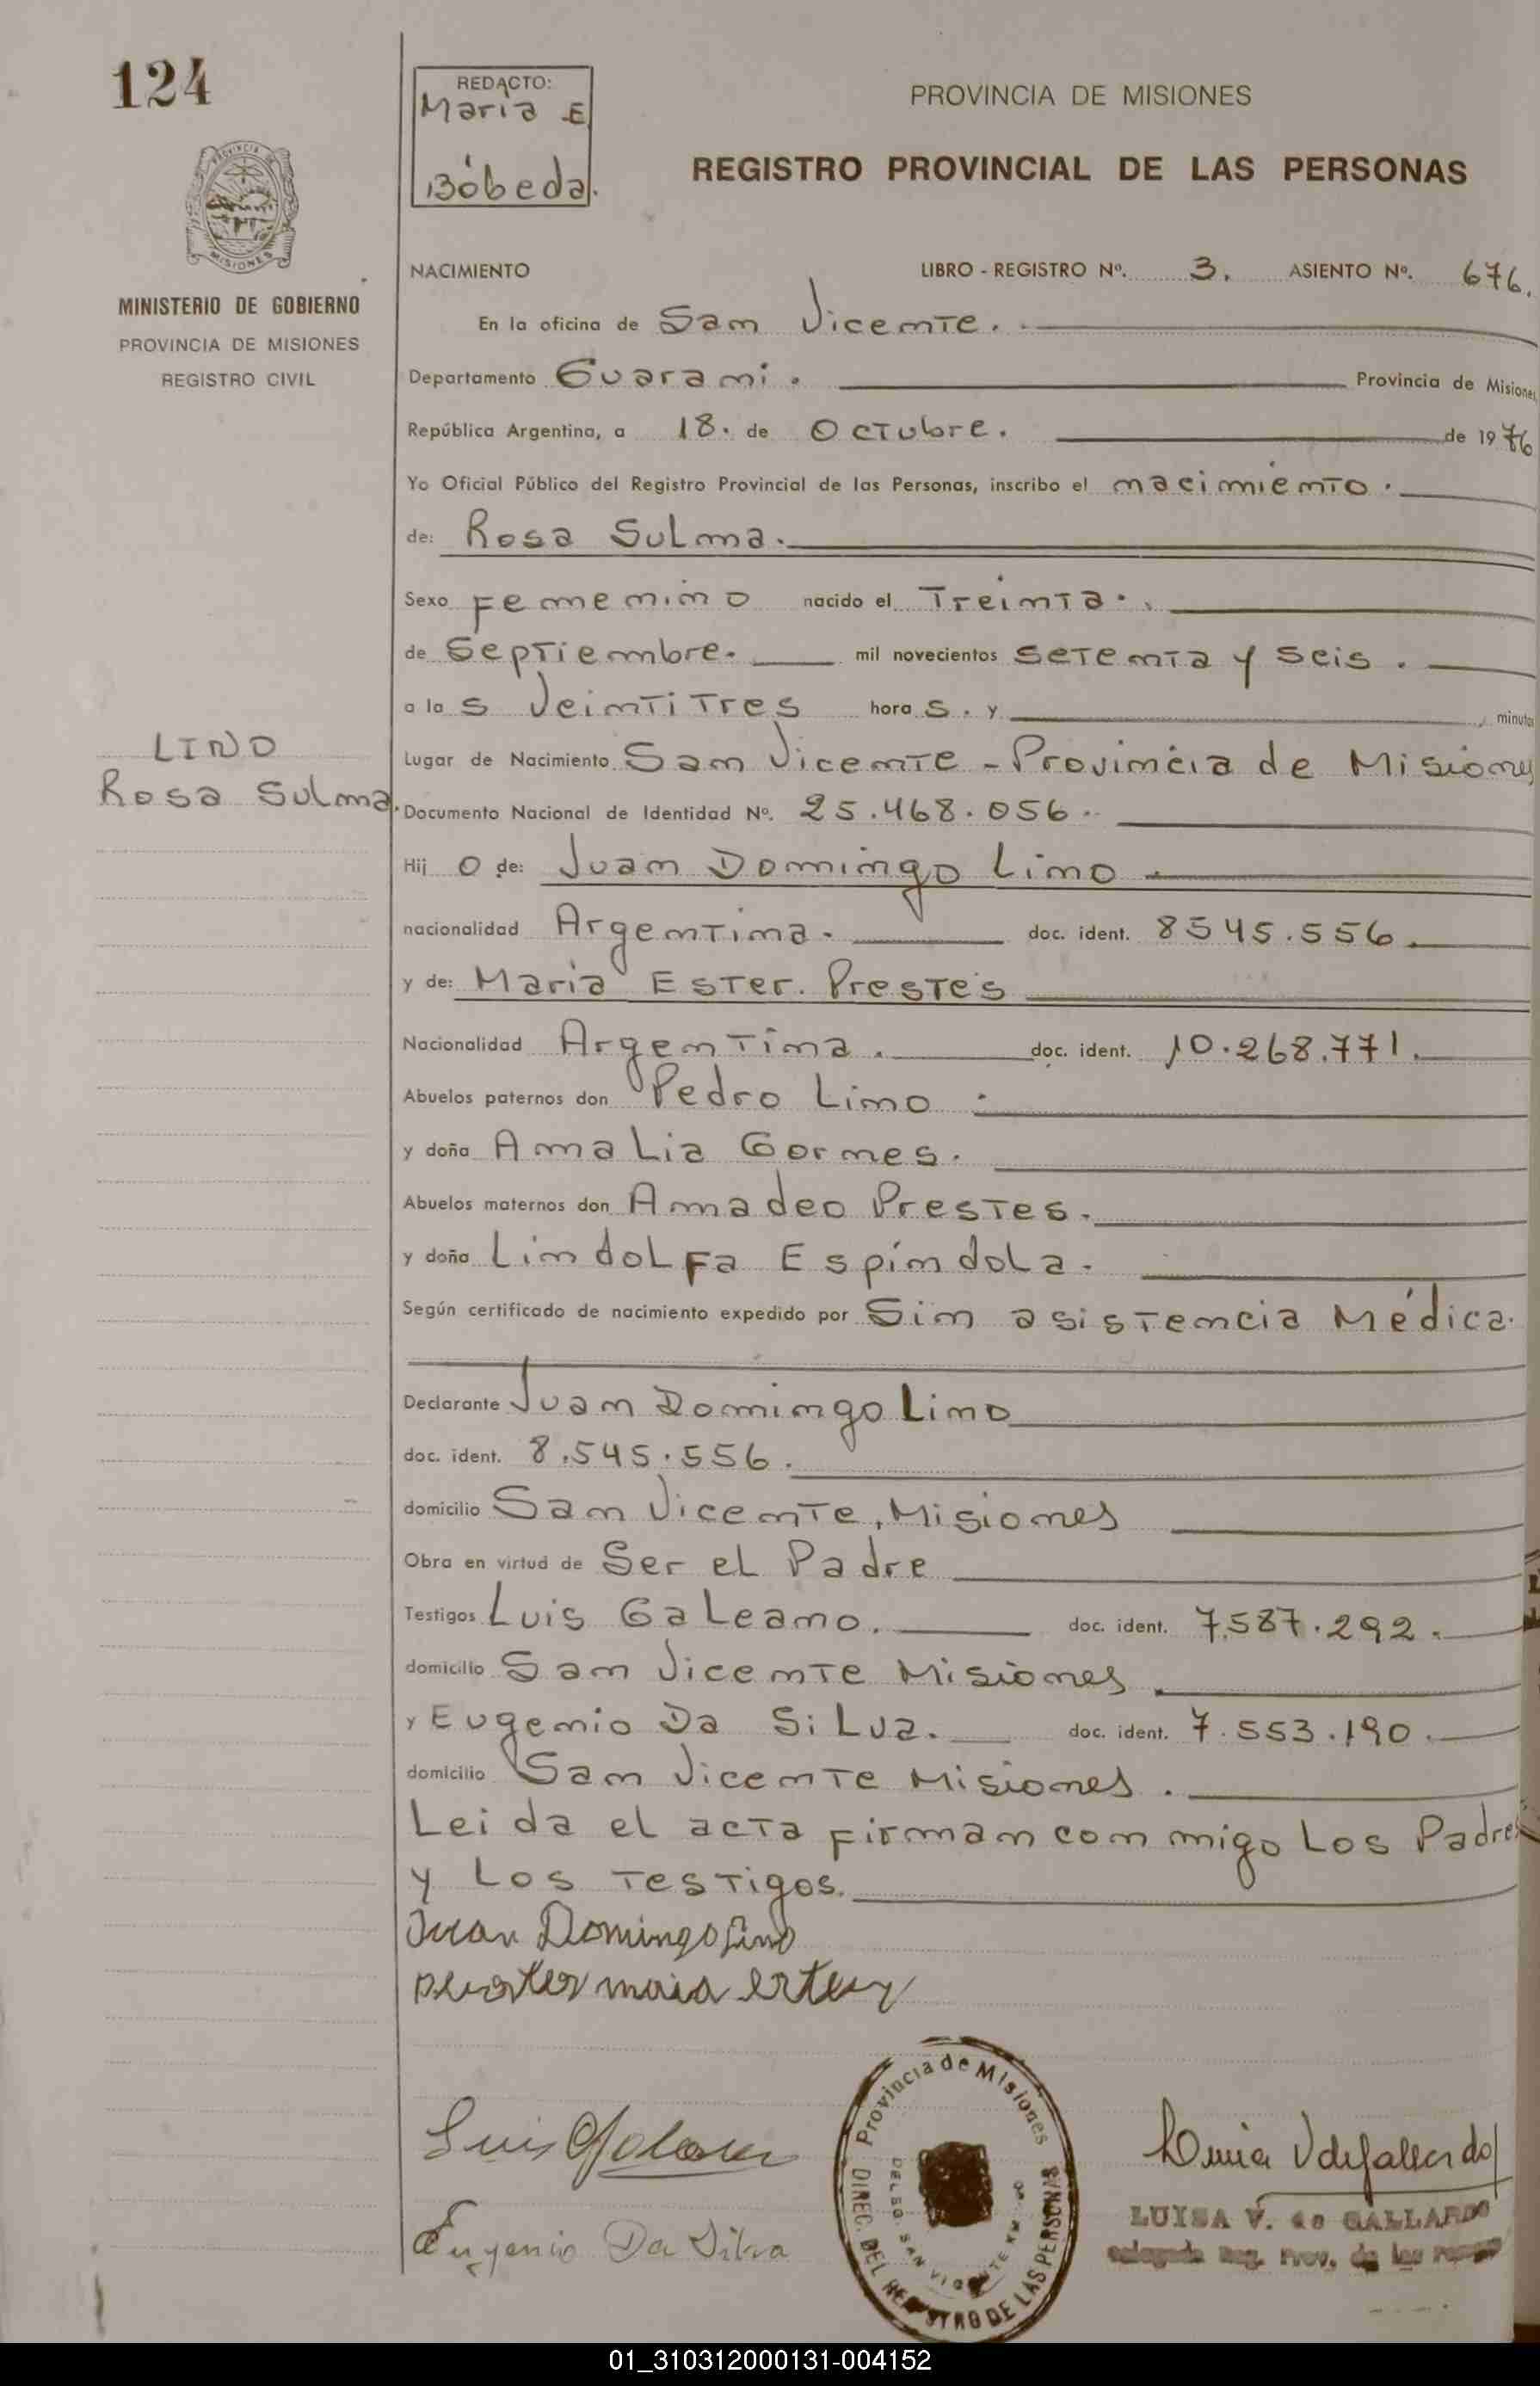 124
REDACTO:
Maria E
Bóbeda.
PROVINCIA DE MISIONES
REGISTRO PROVINCIAL DE LAS PERSONAS
PROVINCIA DE
MISIONES
MINISTERIO DE GOBIERNO
PROVINCIA DE MISIONES
REGISTRO CIVIL
NACIMIENTO LIBRO - REGISTRO Nº. 3. ASIENTO Nº. 676.
En la oficina de San Vicente.
Departamento Guarani. Provincia de Misiones,
República Argentina, a 18. de Octubre. de 1976
Yo Oficial Público del Registro Provincial de las Personas, inscribo el nacimiento.
de: Rosa Sulma.
Sexo Femenino nacido el Treinta.
de Septiembre. mil novecientos setenta y seis.
a las Veintitres horas. y , minutos
LINO
Rosa Sulma.
Lugar de Nacimiento San Vicente - Provincia de Misiones
Documento Nacional de Identidad Nº. 25.468.056.
Hijo de: Juan Domingo Lino.
nacionalidad Argentina. doc. ident. 8545.556.
y de: Maria Ester. Prestes
Nacionalidad Argentina. doc. ident. 10.268.771.
Abuelos paternos don Pedro Lino.
y doña Amalia Gormes.
Abuelos maternos don Amadeo Prestes.
y doña Lindolfa Espíndola.
Según certificado de nacimiento expedido por Sin asistencia Médica.
Declarante Juan Domingo Lino
doc. ident. 8.545.556.
domicilio San Vicente, Misiones
Obra en virtud de Ser el Padre
Testigos Luis Galeano. doc. ident. 7.587.292.
domicilio San Vicente Misiones.
y Eugenio Da Silva. doc. ident. 7.553.190.
domicilio San Vicente Misiones.
Leida el acta firman con migo los Padres
y los testigos.
Juan Domingo Lino
maia
Luis
Eugenio Da Silva
Provincia de Misiones
DIREC. DEL REGISTRO DE LAS PERSONAS
DELEG. SAN VICENTE
LUISA V. de GALLARDO
Reg. Prov. de las
01_310312000131-004152